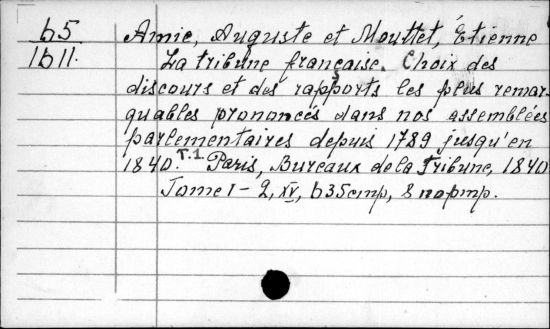 65 Amic, Auguste et Mouttet, Étienne
1611. La tribune française. Choix des
discours et des rapports les plus remar-
quables prononcés dans nos assemblées
parlementaires depuis 1789 jusqu'en
1840. T.1. Paris, Bureaux de la Tribune, 1840
Tome 1-2, XV, 635 стр, 8 порт.